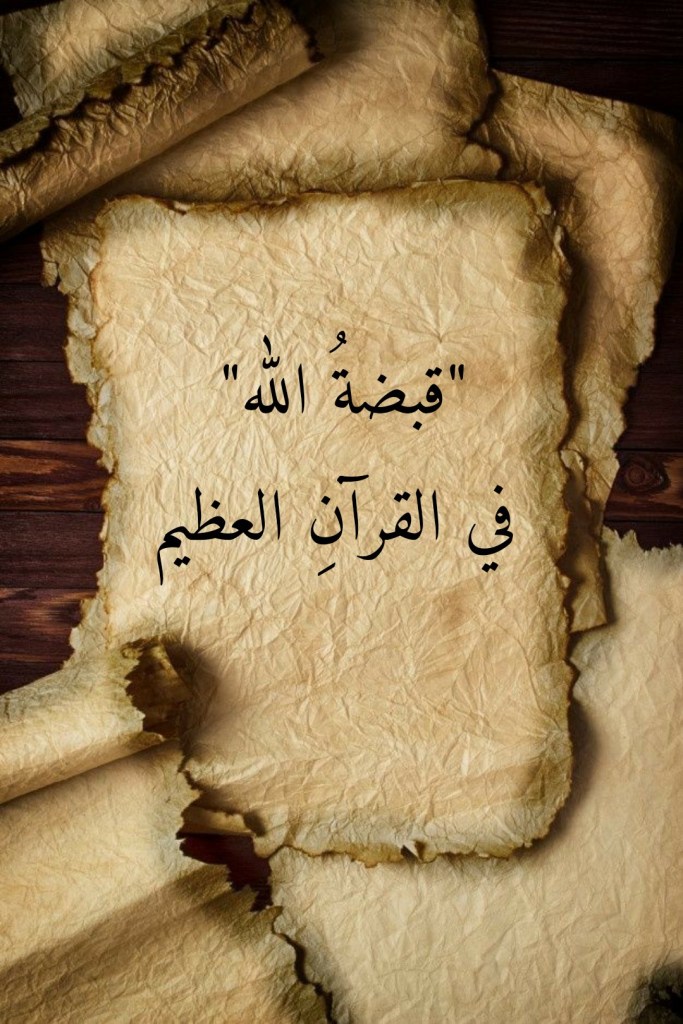 "قبضةُ الله"
في القرآنِ العظيم